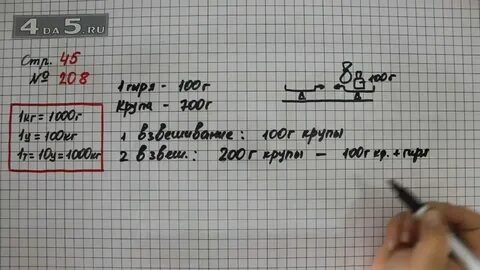 4DA5.RU
Стр. 45
№ 208
1 гиря - 100г
Крупа - 700г
100г
1кг = 1000г
1ц = 100кг
1т = 10ц = 1000кг
1 взвешивание: 100г крупы
2 взвеш.: 200г крупы - 100г кр. + гиря